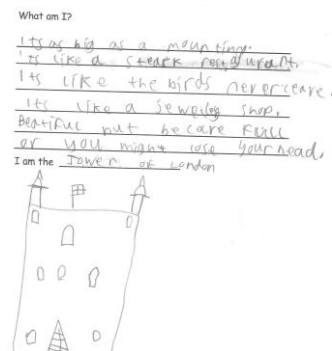 What am I?
Its as big as a mountin.
its like a steark restaurant.
Its like the birds never ceare.
Its like a Jeweley shop.
Beatiful but be care full
or you might lose your head.
I am the Tower of London